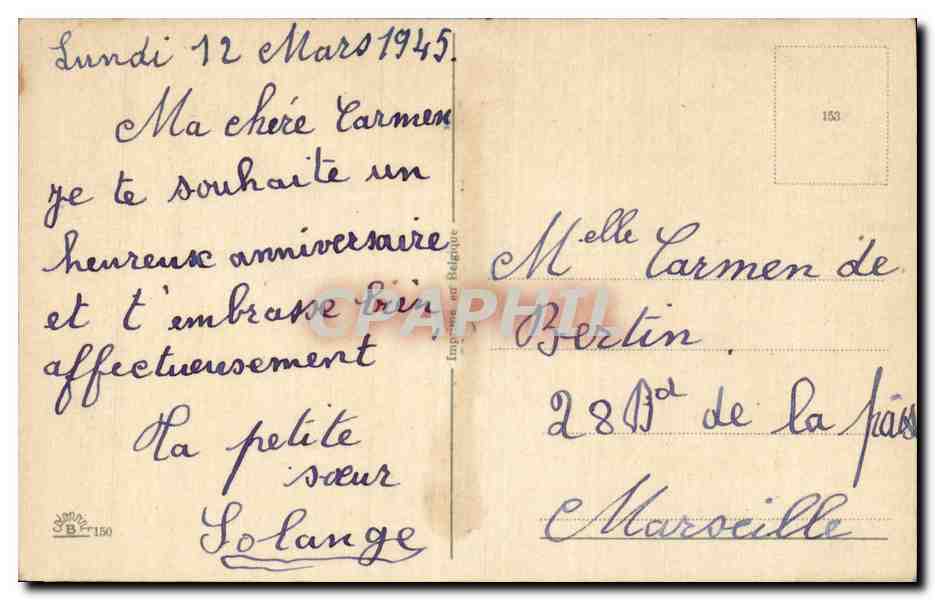 Lundi 12 Mars 1945.
Ma chére Carmen
je te souhaite un
heureux anniversaire
et t'embrasse bien
affectueusement
Ta petite
sœur
Solange
Colorprint
B 150
Imprimé en Belgique
CPAPHIL
153
Melle Carmen de
Bertin
28 Bd de la paix
Marseille